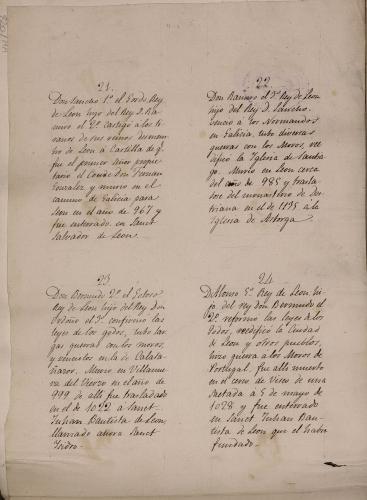 21.
Don Sancho 1º el Gordo Rey
de Leon hijo del Rey D. Ra-
miro el 2º castigó a los ti-
ranos de sus reinos desmem-
bró de Leon á Castilla de q.
fue el primer dueño propie-
tario el Conde Don Fernan
Gonzalez y murió en el
camino de Galicia para
Leon en el año de 967 y fue
enterrado en Sanct
Salvador de Leon.
22.
Don Ramiro el 3º Rey de Leon
hijo del Rey D. Sancho
venció a los Normandos
en Galicia, tubo diversas
guerras con los Moros, ree-
dificó la Yglesia de Santia-
go. Murió en Leon cerca
del año de 985 y trasla-
dose del monasterio de Des-
triana en el de 1195 á la
Yglesia de Astorga
23
Don Bermudo 2º el Gotoso
Rey de Leon hijo del Rey Don
Ordoño el 3º confirmó las
leyes de los godos, tubo lar-
gas guerras con los moros,
y venciolos en la de Calata-
ñazor. Murió en Villanue-
va del Vierzo en el año de
999 de allí fue trasladado
en el de 1022 a Sanct
Juhan Bautista de Leon
llamado ahora Sanct
Isidro.
24
D. Alonso 5º Rey de Leon hi-
jo del rey don Bermudo el
2º reformó las leyes a los
Godos, reedificó la Ciudad
de Leon y otros pueblos,
hizo guerra a los Moros de
Portugal, fue allí muerto
en el cerco de Viseo de una
saetada á 5 de mayo de
1028 y fue enterrado
en Sanct Juhan Bau-
tista de Leon que el habia
fundado.